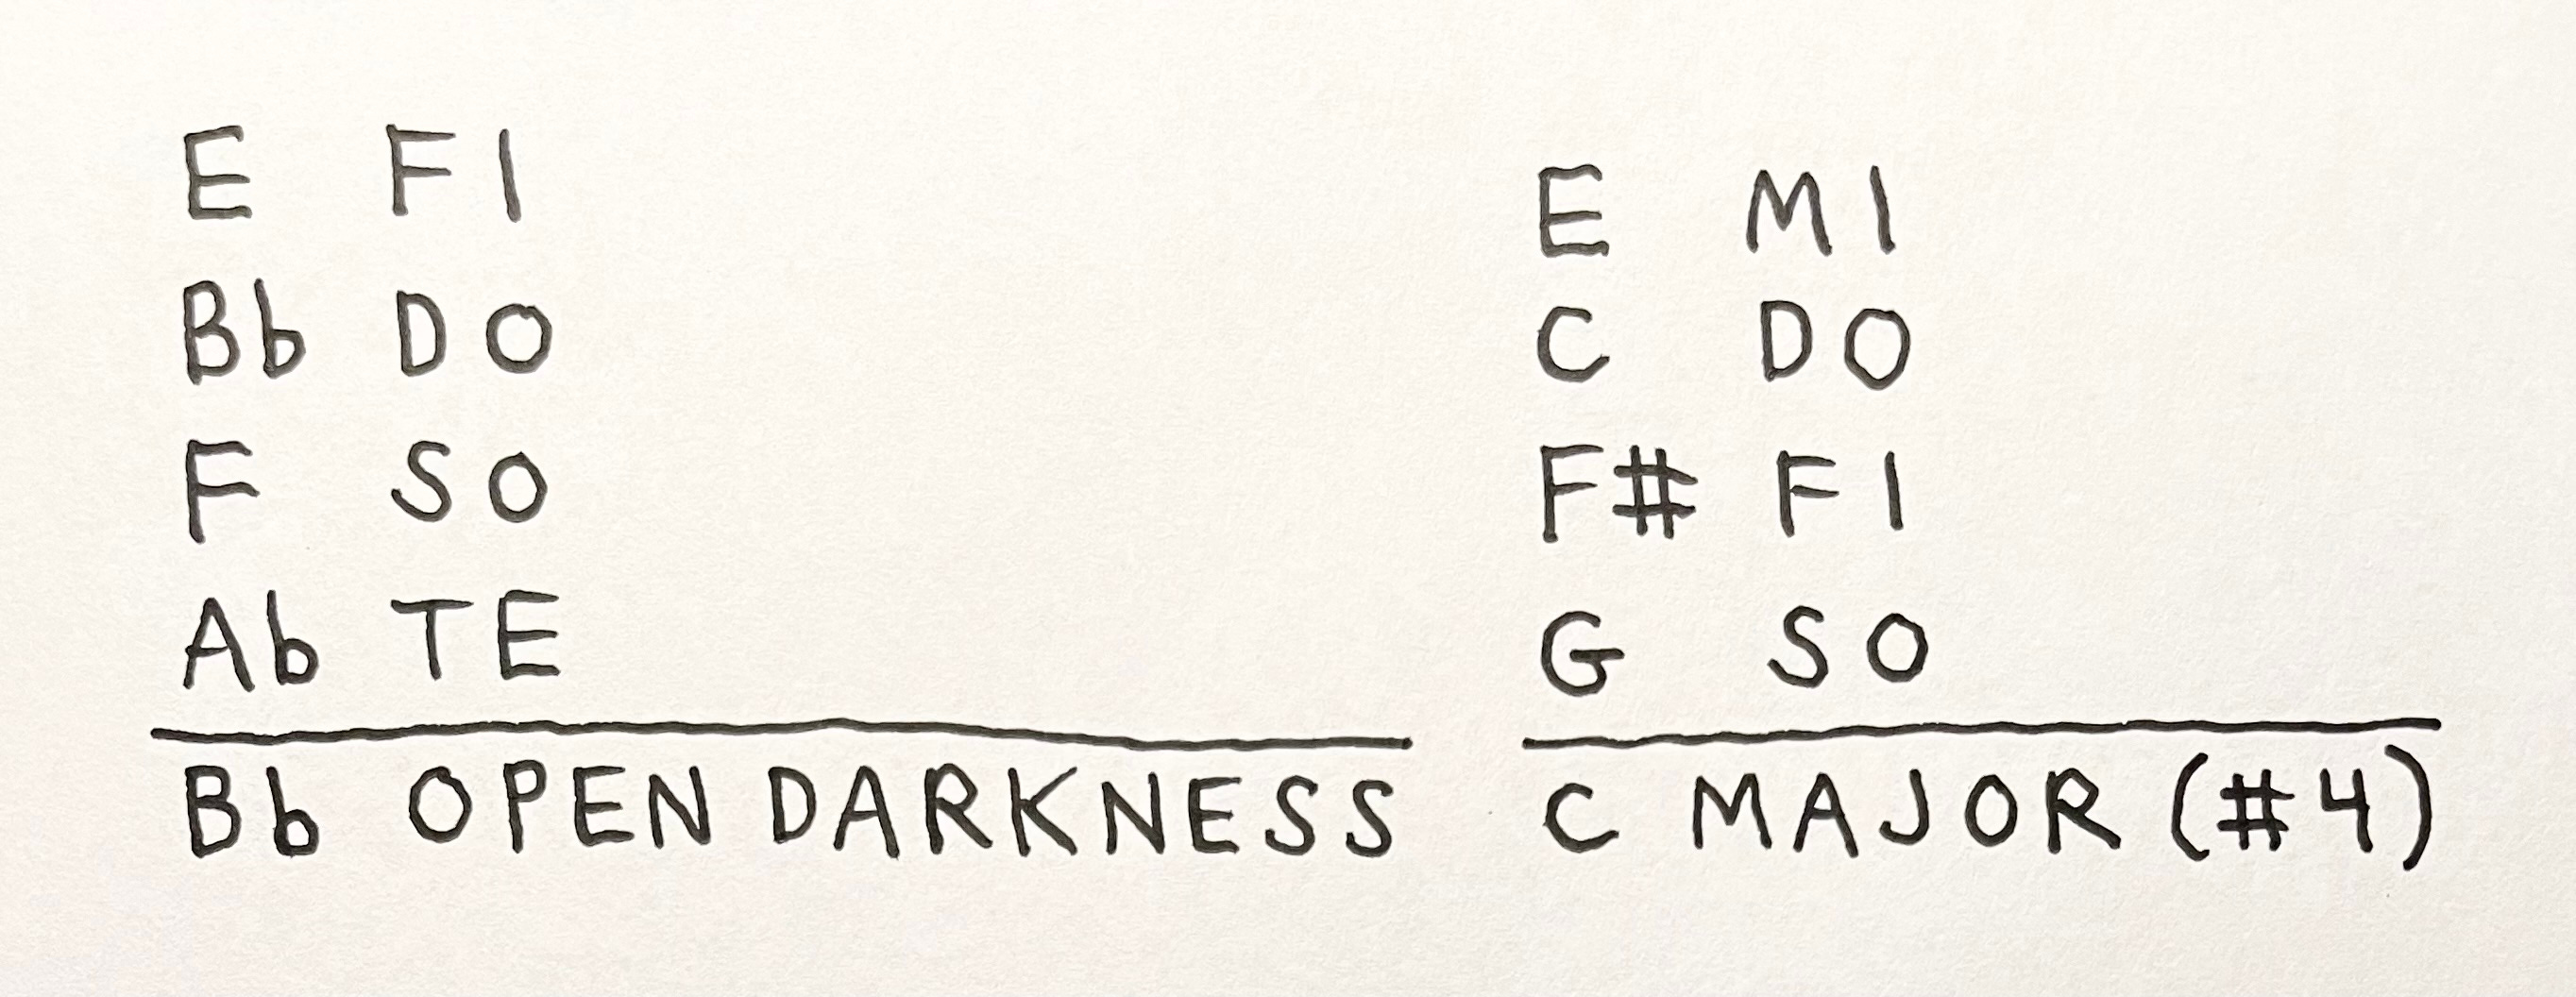 E FI
Bb DO
F SO
Ab TE
Bb OPEN DARKNESS
E MI
C DO
F# FI
G SO
C MAJOR (#4)